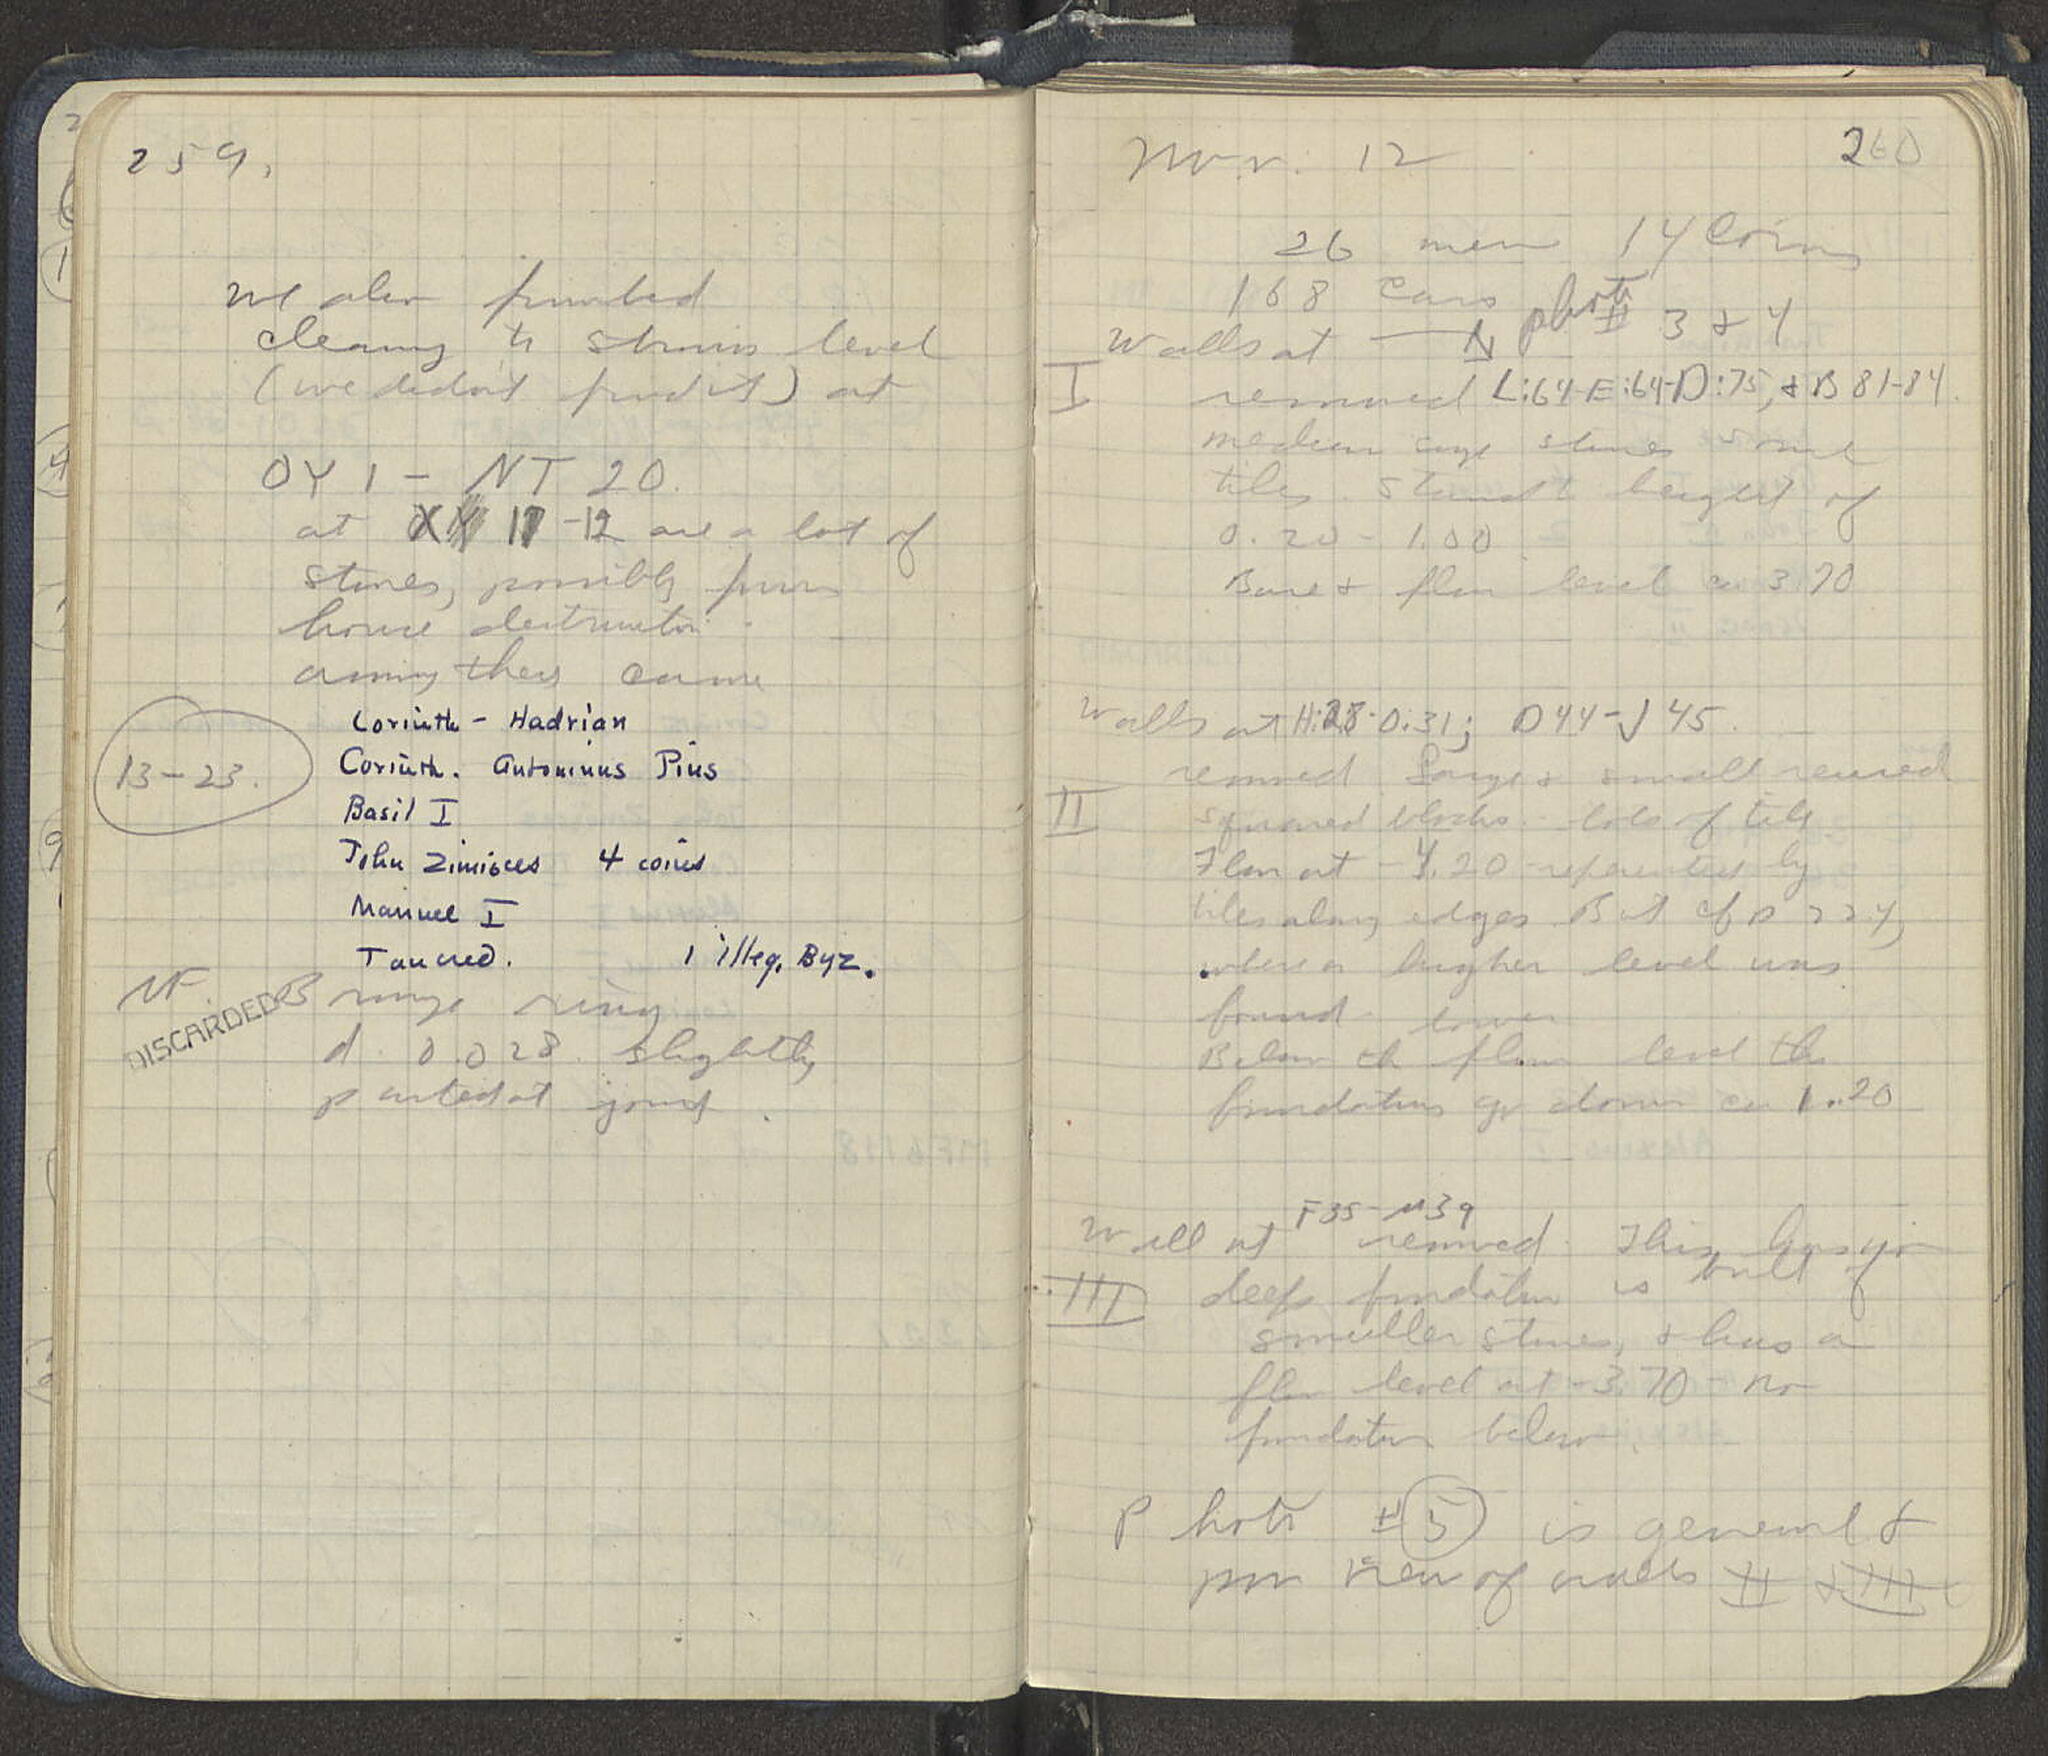 259.
we also finished
cleaning to stroses level
(we didn't find it) at
OY 1 - NT 20.
at XY 11 -12 are a lot of
stones, possibly from
house destruction.
among these came
13-23.
Corinth - Hadrian
Corinth. Antoninus Pius
Basil I
John Zimisces 4 coins
Manuel I
Tancred. 1 illeg. Byz.
MF Bronze ring
DISCARDED
d. 0.028. slightly
parted at joint.
Nov. 12 260
26 men 14 Coins
168 cars
Walls at — N photo # 3 & 4
I removed L:64-E:64-D:75, & B 81-84.
medium size stones some
tiles. Stands to height of
0.20 - 1.00
Base & floor level ca 3.70
Walls at H:28-O:31; D44-J45.
removed. Large & small reused
II squared blocks - lots of tile
Floor at -4.20 - represented by
tiles along edges. But cf p 224,
where a higher level was
found.
Below the lower floor level the
foundations go down ca 1.20
Wall at F35-M39 removed. This has no
III deep foundation is built of
smaller stones, & has a
floor level at -3.70 - no
foundation below.
Photo # 5 is general &
poor view of walls II & III